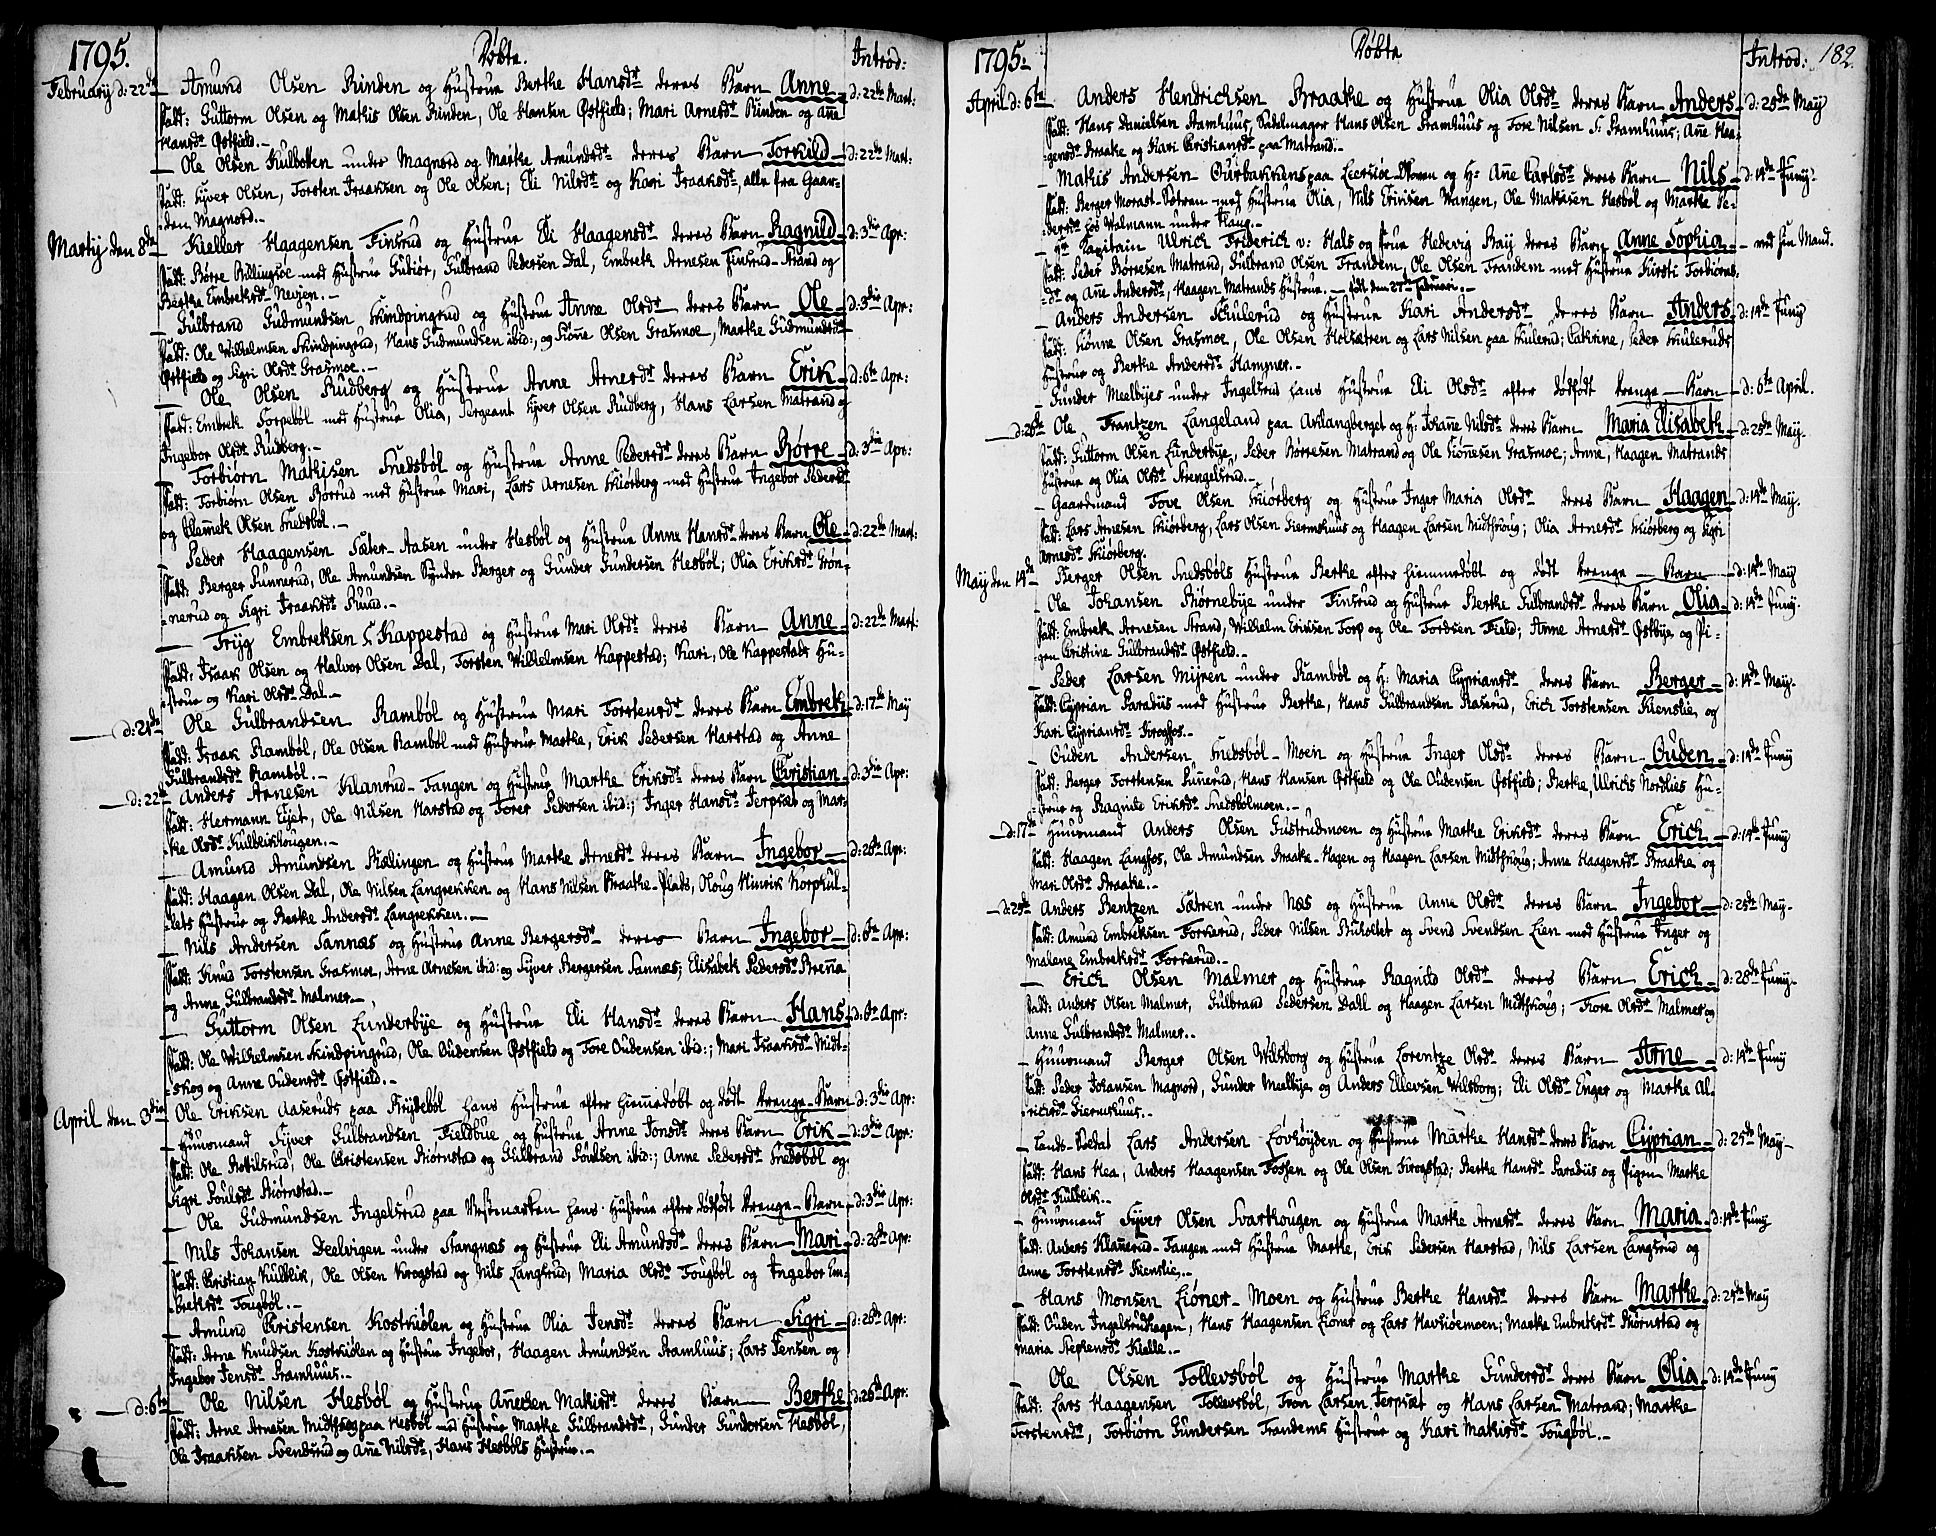 1795. Døbte. Introd:
February d: 22de Amund Olsen Rinden og Hustrue Berthe Hansdt deres Barn Anne d: 22de Mart:
Fadd: Guttorm Olsen og Mathis Olsen Rinden, Ole Hansen Østfield; Mari Arnesdt Rinden og Añe
Hansdt Østfield.
Ole Olsen Kulbotten under Magnord og Marthe Amundsdt deres Barn Torkild d: 22de Mart:
Fadd: Syver Olsen, Torsten Isaaksen og Ole Olsen; Eli Nilsdt og Kari Isaaksdt, alle fra Gaar-
den Magnord.
Martij den 8de Kieller Haagensen Finsrud og Hustrue Eli Haagensdt deres Barn Ragnild d: 3die Apr:
Fadd: Børre Billingsøe med Hustrue Gubiør, Gulbrand Pedersen Dal, Embrek Arnesen Finsrud-Strand og
Berthe Embreksdt Neujen.
Gulbrand Gudmundsen Skindpingrud og Hustrue Anne Olsdt deres Barn Ole d: 3die Apr:
Fadd: Ole Wilhelmsen Skindpingrud, Hans Gudmundsen ibid:, og Siøñe Olsen Grasmoe, Marthe Gudmundsdt
Østfield og Sigri Olsdt Grasmoe.
Ole Olsen Rudberg og Hustrue Anne Arnesdt deres Barn Erik d: 6te Apr:
Fadd: Embrek Torpebøl med Hustrue Olia, Sergeant Syver Olsen Rudberg, Hans Larsen Matrand og
Ingebor Olsdt Rudberg.
Torbiørn Mathisen Snedsbøl og Hustrue Anne Pedersdt deres Barn Børre d: 3die Apr:
Fadd: Torbiørn Olsen Borrud med Hustrue Mari, Lars Arnesen Skiørberg med Hustrue Ingebor Pedersdt
og Clamek Olsen Snedsbøl.
Peder Haagensen Sæter-Aasen under Hesbøl og Hustrue Anne Hansdt deres Barn Ole d: 22de Mart:
Fadd: Berger Sunnerud, Ole Amundsen Syndre Berger og Gunder Gundersen Hesbøl; Olia Eriksdt Grøn-
nerud og Sigri Isaaksdt Ruud.
Tryg Embreksen S. Kappestad og Hustrue Mari Olsdt deres Barn Anne d: 22de Mart:
Fadd: Isaak Olsen og Halvor Olsen Dal, Torsten Wilhelmsen Kappestad; Kari, Ole Kappestads Hu-
strue og Kari Olsdt Dal.
d: 21de Ole Gulbrandsen Rambøl og Hustrue Mari Torstensdt deres Barn Embrek d: 17de May
Fadd: Isaak Rambøl, Ole Olsen Rambøl med Hustrue Marthe, Erik Pedersen Harstad og Anne
Gulbrandsdt Rambøl.
d: 22de Anders Arnesen Klanrud-Tangen og Hustrue Marthe Eriksdt deres Barn Christian d: 3die Apr:
Fadd: Hermann Eyet, Ole Nilsen Harstad og Torer Pedersen ibid:; Inger Hansdt Jerpset og Mar-
the Olsdt Kulblikhougen.
Amund Amundsen Kælingen og Hustrue Marthe Arnesdt deres Barn Ingebor d: 26de Apr:
Fadd: Haagen Olsen Dal, Ole Nilsen Langrekken og Hans Nilsen Braathe-Plads, Oloug Hinrik Korpkul-
lets Hustrue og Berthe Andersdt Langrekken.
Nils Andersen Sannæs og Hustrue Anne Bergersdt deres Barn Ingebor d: 6te Apr:
Fadd: Knud Torstensen Grasmoe, Arne Arnesen ibid: og Syver Bergersen Sannæs; Elisabeth Pedersdt Breña
og Anne Gulbrandsdt Malmer.
Guttorm Olsen Lunderbye og Hustrue Eli Hansdt deres Barn Hans d: 6te Apr:
Fadd: Ole Wilhelmsen Skindpingrud, Ole Oudensen Østfield og Tore Oudensen ibid:; Mari Isaaksdt Midt-
skog og Anne Oudensdt Østfield.
April den 3die Ole Eriksen Aaseruds paa Frydebøl hans Hustrue efter hiemmedøbt og dødt drenge-Barn d: 3die Apr:
Huusmand Syver Gulbrandsen Fieldbue og Hustrue Anne Jonsdt deres Barn Erik d: 3die Apr:
Fadd: Ole Aschilsrud, Ole Christensen Biørnstad og Gulbrand Poulsen ibid:; Anne Pedersdt Snedsbøl og
Sigri Poulsdt Biørnstad.
Ole Gudmundsen Ingelsrud paa Vestmarken hans Hustrue efter dødfødt drenge-Barn d: 3die Apr:
Nils Johansen Deelvigen under Stangnæs og Hustrue Eli Amundsdt deres Barn Mari d: 26de Apr:
Fadd: Christian Kulblik, Ole Olsen Krogstad og Nils Langsrud, Maria Olsdt Tougbøl og Ingebor Em-
breksdt Tougbøl.
Amund Christensen Kostkiølen og Hustrue Olia Jensdt deres Barn Sigri d: 26de Apr:
Fadd: Arne Knudsen Kostkiølen og Hustrue Ingebor, Haagen Amundsen Framhuus; Lars Jensen og
Ingebor Jensdt Framhuus.
d: 6te Ole Nilsen Hesbøl og Hustrue Añechen Mathisdt deres Barn Berthe d: 26de Apr:
Fadd: Arne Arnesen Midtskog paa Hesbøl med Hustrue Marthe Gulbrandsdt, Gunder Gundersen Hesbøl,
Ole Isaaksen Svendsrud og Añe Nilsdt, Hans Hesbøls Hustrue.
1795. Døbte Introd: 182.
April d: 6te Anders Hendrichsen Braathe og Hustrue Olia Olsdt deres Barn Anders d: 25de May
Fadd: Hans Danielsen Framhuus, Sadelmager Hans Olsen Framhuus og Tore Nilsen S: Framhuus; Añe Haa-
gensdt Braathe og Kari Christiansdt paa Matrand.
Mathis Andersen Ourbakkens paa Leersiøe Moren og H: Añe Carlsdt deres Barn Nils d: 14de Juny
Fadd: Berger Morast-Sætren med Hustrue Olia, Nils Eriksen Wangen, Ole Mathisen Hesbøl og Marthe Pe-
dersdt hos Walmann under Haug.
Hr Capitain Ulrich Friderich v: Hals og Frue Hedevig Bay deres Barn Anne Sophia med sin Mand.
Fadd: Peder Børresen Matrand, Gulbrand Olsen Frandem, Ole Olsen Frandem med Hustrue Kirsti Torbiørns-
dt og Añe Andersdt, Haagen Matrands Hustrue. – født den 27de Februari.
Anders Andersen Skulerud og Hustrue Kari Andersdt deres Barn Anders d: 14de Juny
Fadd: Siønne Olsen Grasmoe, Ole Olsen Holsætren og Lars Nilsen paa Skulerud; Cathrine, Peder Skuleruds
Hustrue og Berthe Andersdt Hammer.
Gunder Meelbyes under Ingelsrud hans Hustrue Eli Olsdt efter dødfødt drenge-Barn d: 6te April.
d: 26de Ole Frantzen Langeland paa Aklangberget og H: Johañe Nilsdt deres Barn Maria Elisabeth d: 25de May.
Fadd: Guttorm Olsen Lunderbye, Peder Børresen Matrand og Ole Siønesen Grasmoe; Anne, Haagen Matrands
Hustrue og Olia Olsdt Strengelsrud.
Gaardmand Tore Olsen Skiørberg og Hustrue Inger Maria Olsdt deres Barn Haagen d: 14de May.
Fadd: Lars Arnesen Skiørberg, Lars Olsen Giermshuus og Haagen Larsen Midtskoug; Olia Arnesdt Skiørberg og Sigri
Arnesdt Skiørberg.
May den 14de Berger Olsen Snedsbøls Hustrue Berthe efter hiemmedøbt og dødt drenge-Barn d: 14de May
Ole Johansen Biørnebye under Finsrud og Hustrue Berthe Gulbrandsdt deres Barn Olia d: 14de Juny.
Fadd: Embrek Arnesen Strand, Wilhelm Eriksen Torp og Ole Tordsen Field; Anne Arnesdt Østbye og Pi-
gen Christine Gulbrandsdt Østfield.
Peder Larsen Myren under Rambøl og H: Maria Cypriansdt deres Barn Berger d: 14de May.
Fadd: Cyprian Paradiis med Hustrue Berthe, Hans Gulbrandsen Raserud, Erich Torstensen Kienslie, og
Kari Cypriansdt Krogfos.
Ouden Andersen Snedsbøl-Moen og Hustrue Inger Olsdt deres Barn Ouden d: 14de Juny
Fadd: Berger Torstensen Suñerud, Hans Hansen Østfield og Ole Oudensen Østfield; Berthe, Ulrichs Nordlies Hu-
strue og Ragnild Eriksdt Snedsbølmoen.
d: 17de Huusmand Anders Olsen Gustrudmoen og Hustrue Marthe Eriksdt deres Barn Erich d: 14de Juny
Fadd: Haagen Langfos, Ole Amundsen Braathe-Hagen og Haagen Larsen Midtskoug; Anne Haagensdt Braathe og
Mari Olsdt Braathe.
d: 25de Anders Bentzen Sætren under Næs og Hustrue Anne Olsdt deres Barn Ingebor d: 25de May
Fadd: Amund Embreksen Torkerud, Peder Nilsen Buholtet og Svend Svendsen Lien med Hustrue Inger og
Malene Embreksdt Torkerud.
Erich Olsen Malmer og Hustrue Ragnild Olsdt deres Barn Erich d: 28de Juny.
Fadd: Anders Olsen Malmer, Gulbrand Pedersen Dahl og Haagen Larsen Midtskoug; Tore Olsdt Malmer og
Anne Gulbrandsdt Malmer.
Huusmand Berger Olsen Wilsborg og Hustrue Lorentze Olsdt deres Barn Arne d: 14de Juny
Fadd: Peder Johansen Magnord, Gunder Meelbye og Anders Ellevsen Wilsborg; Eli Olsdt Enger og Marthe Al-
richsdt Giermshuus.
Lands-Soldat Lars Andersen Løvhøyden og Hustrue Marthe Hansdt deres Barn Cyprian d: 25de May
Fadd: Hans Hea, Anders Haagensen Fossen og Ole Olsen Krogstad; Berthe Hansdt Paradiis og Pigen Marthe
Olsdt Kulblik.
Huusmand Syver Olsen Svarthougen og Hustrue Marthe Arnesdt deres Barn Maria d: 14de Juny
Fadd: Anders Klañerud-Tangen med Hustrue Marthe, Erik Pedersen Harstad, Nils Larsen Langsrud og
Anne Torstensdt Kienslie.
Hans Monsen Liøner-Moen og Hustrue Berthe Hansdt deres Barn Marthe d: 25de May
Fadd: Ouden Ingelsrudhagen, Hans Haagensen Liøner og Lars Havsiøemoen; Marthe Embreksdt Biørnstad og
Maria Stephensdt Kielle.
Ole Olsen Tollevsbøl og Hustrue Marthe Gundersdt deres Barn Olia d: 14de Juny
Fadd: Lars Haagensen Tollevsbøl, Iron Larsen Jerpset og Hans Larsen Matrand; Marthe
Torstensdt, Torbiørn Gundersen Frandems Hustrue og Kari Mathisdt Tougbøl.